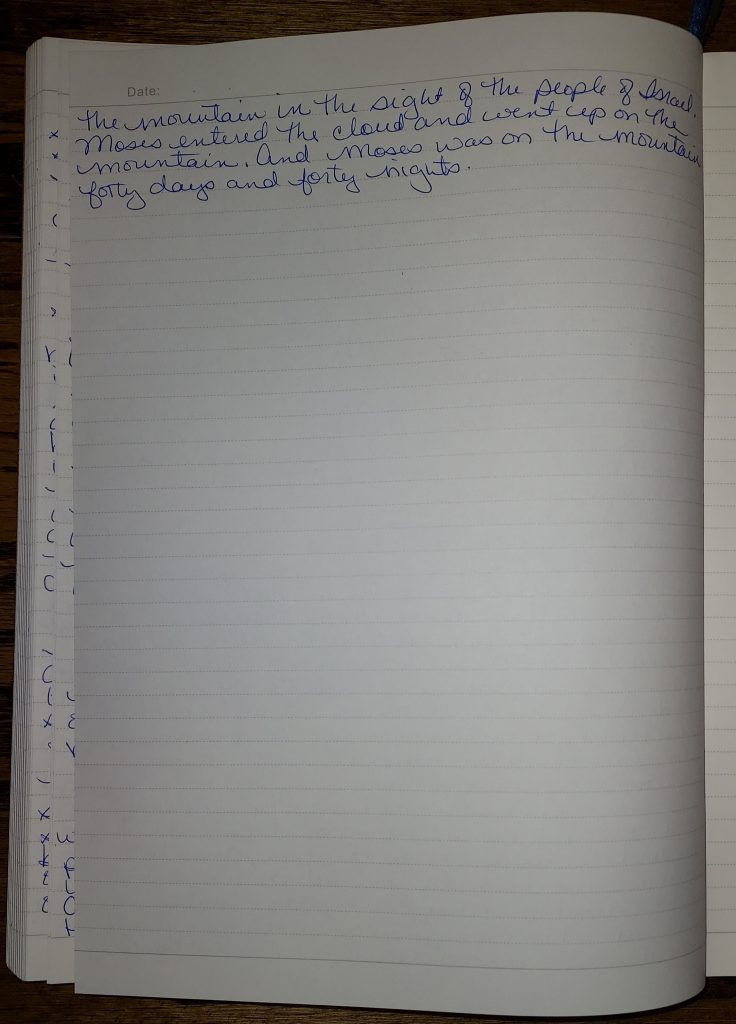 Date:
the mountain in the sight of the people of Israel.
Moses entered the cloud and went up on the
mountain. And Moses was on the mountain
forty days and forty nights.